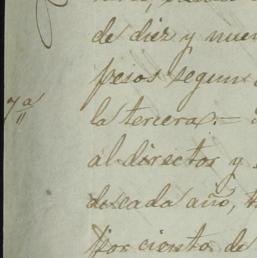 de diez y nueve
pesos segun
7ª
la tercera.=
al director y
dicada año,
por ciento de